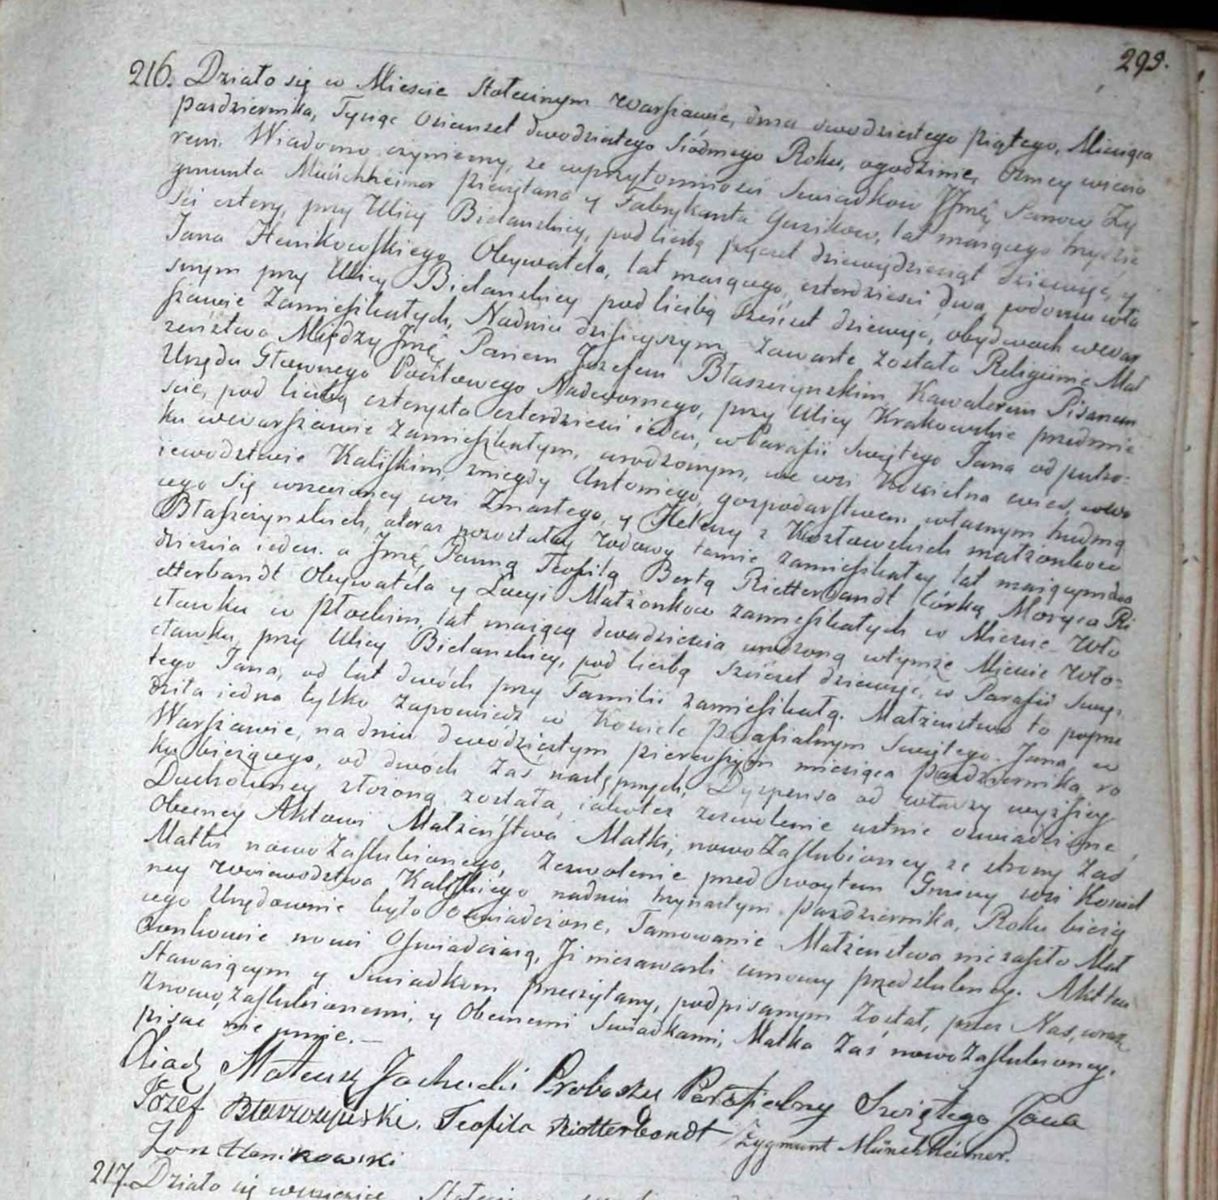 299.
216. Działo się w Mieście Stołecznym Warszawie, dnia dwudziestego piątego, Miesiąca
Pazdziernika, Tysiąc Osiemset dwudziestego Siódmego Roku, ogodzinie, Osmey wieczo
rem. Wiadomo czyniemy, ze wprzytomnosci Swiadkow JJmć Panow Zy
gmunta Münchheimer Fabrykanta Guzikow, lat maiącego trzydzie
ści cztery, przy Ulicy Bielanskiey, pod liczbą dziewięćdziesiąt dziewięć, y
Jana Henikowskiego Obywatela, lat maiącego, czterdzieści dwa, podomu wła
snym przy Ulicy Bielanskiey pod liczbą sześćset dziewięć, obydwoch wwar
szawie Zamieszkałych, Nadniu dzisieyszym Zawarte zostało Religijne Mał
zeństwo Między Jmć Panem Józefem Błaszczynskim, Kawalerem Pisarzem
Urzędu Głownego Pocztowego Nadwornego, przy Ulicy Krakowskie przedmie
ście, pod liczbą czterysta czterdzieści ieden, w Parafii Swiętego Jana od
ku wwarszawie Zamieszkałym, urodzonym, we wsi Kościelna wieś, wwo
iewodztwie Kaliskim, zniegdy Antoniego gospodarstwem własnym trudnią
cego się wrzeczoney wsi Zmarłego, y Heleny z Kozłowskich małzonkow
Błaszczynskich, ateraz pozostałey wdowy tamże zamieszkałey lat maiącym dwa
dzieścia ieden. a Jmć Panną Teofilą Bertą Rietterbandt Córką Moryca Ri
etterbandt Obywatela y Małżonkow zamieszkałych w Mieście Wło
cławku w Płockim, lat maiącą dwadzieścia urodzoną wtymże Mieście Wło-
cławku, przy Ulicy Bielanskiey, pod liczbą sześćset dziewięć, w Parafii Swię-
tego Jana, od lat dwóch przy Familii zamieszkałą. Małzenstwo to poprze
dziła iedna tylko Zapowiedz w Kościele Parafialnym Swiętego Jana, w
Warszawie, na dniu dwudziestym pierwszym miesiąca Pazdziernika, ro
ku bieżącego, od dwoch Zaś następnych, Dyspensa od władzy wyższey
Duchowney złożoną została, iakoteż zezwolenie ustnie oswiadczone,
Obecney Aktowi Małżeństwa Matki, nowo Zaślubioney, ze strony Zaś
Matki nowo Zaślubionego, Zezwolenie przed woytem Gminy wsi Kościel
ney Woiewodztwa Kaliskiego nadniu trzynastym Pazdziernika, Roku bieżą
cego Urzędownie było oswiadczone, Tamowanie Małzenstwa niezaszło Mał
żonkowie nowi Oświadczaią, Jż niezawarli umowy przedslubney. Akt ten
Stawaiącym y Swiadkom przeczytany, podpisanym Został, przez Nas, wraz
znowo Zaślubionemi, y Obecnemi Swiadkami, Matka Zaś nowo Zaślubioney,
pisac nie umie.—
Xiądz Mateusz Proboszcz Parafialny Swiętego Jana
Józef Błaszczyński. Teofila Rietterbandt Zygmunt Münchheimer.
Jan Henikowski
217. Działo się